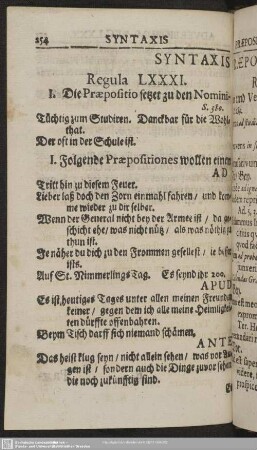 254 SYNTAXIS
SYNTAXIS
Regula LXXXI.
I. Die Præpositio setzet zu den Nomini-
S. 380.
Tüchtig zum Studiren. Danckbar für die Wohl-
that.
Der oft in der Schule ist.
I. Folgende Præpositiones wollen einen
AD
Tritt hin zu diesem Feuer.
Lieber laß doch den Zorn einmahl fahren / und kom-
me wieder zu dir selber.
Wenn der General nicht bey der Armee ist / da ge-
schicht ehe / was nicht nütz / als was nöthig zu
thun ist.
Je näher du dich zu den Frommen gesellest / je besser
ists.
Auf St. Nimmerlings Tag. Es seynd ihr 200.
APUD
Es ist heutiges Tages unter allen meinen Freunden
keiner / gegen dem ich alle meine Heimligkei-
ten dürffte offenbahren.
Beym Tisch darff sich niemand schämen.
ANTE
Das heist klug seyn / nicht allein sehen / was vor Au-
gen ist / sondern auch die Dinge zuvor sehen
die noch zukünfftig sind.